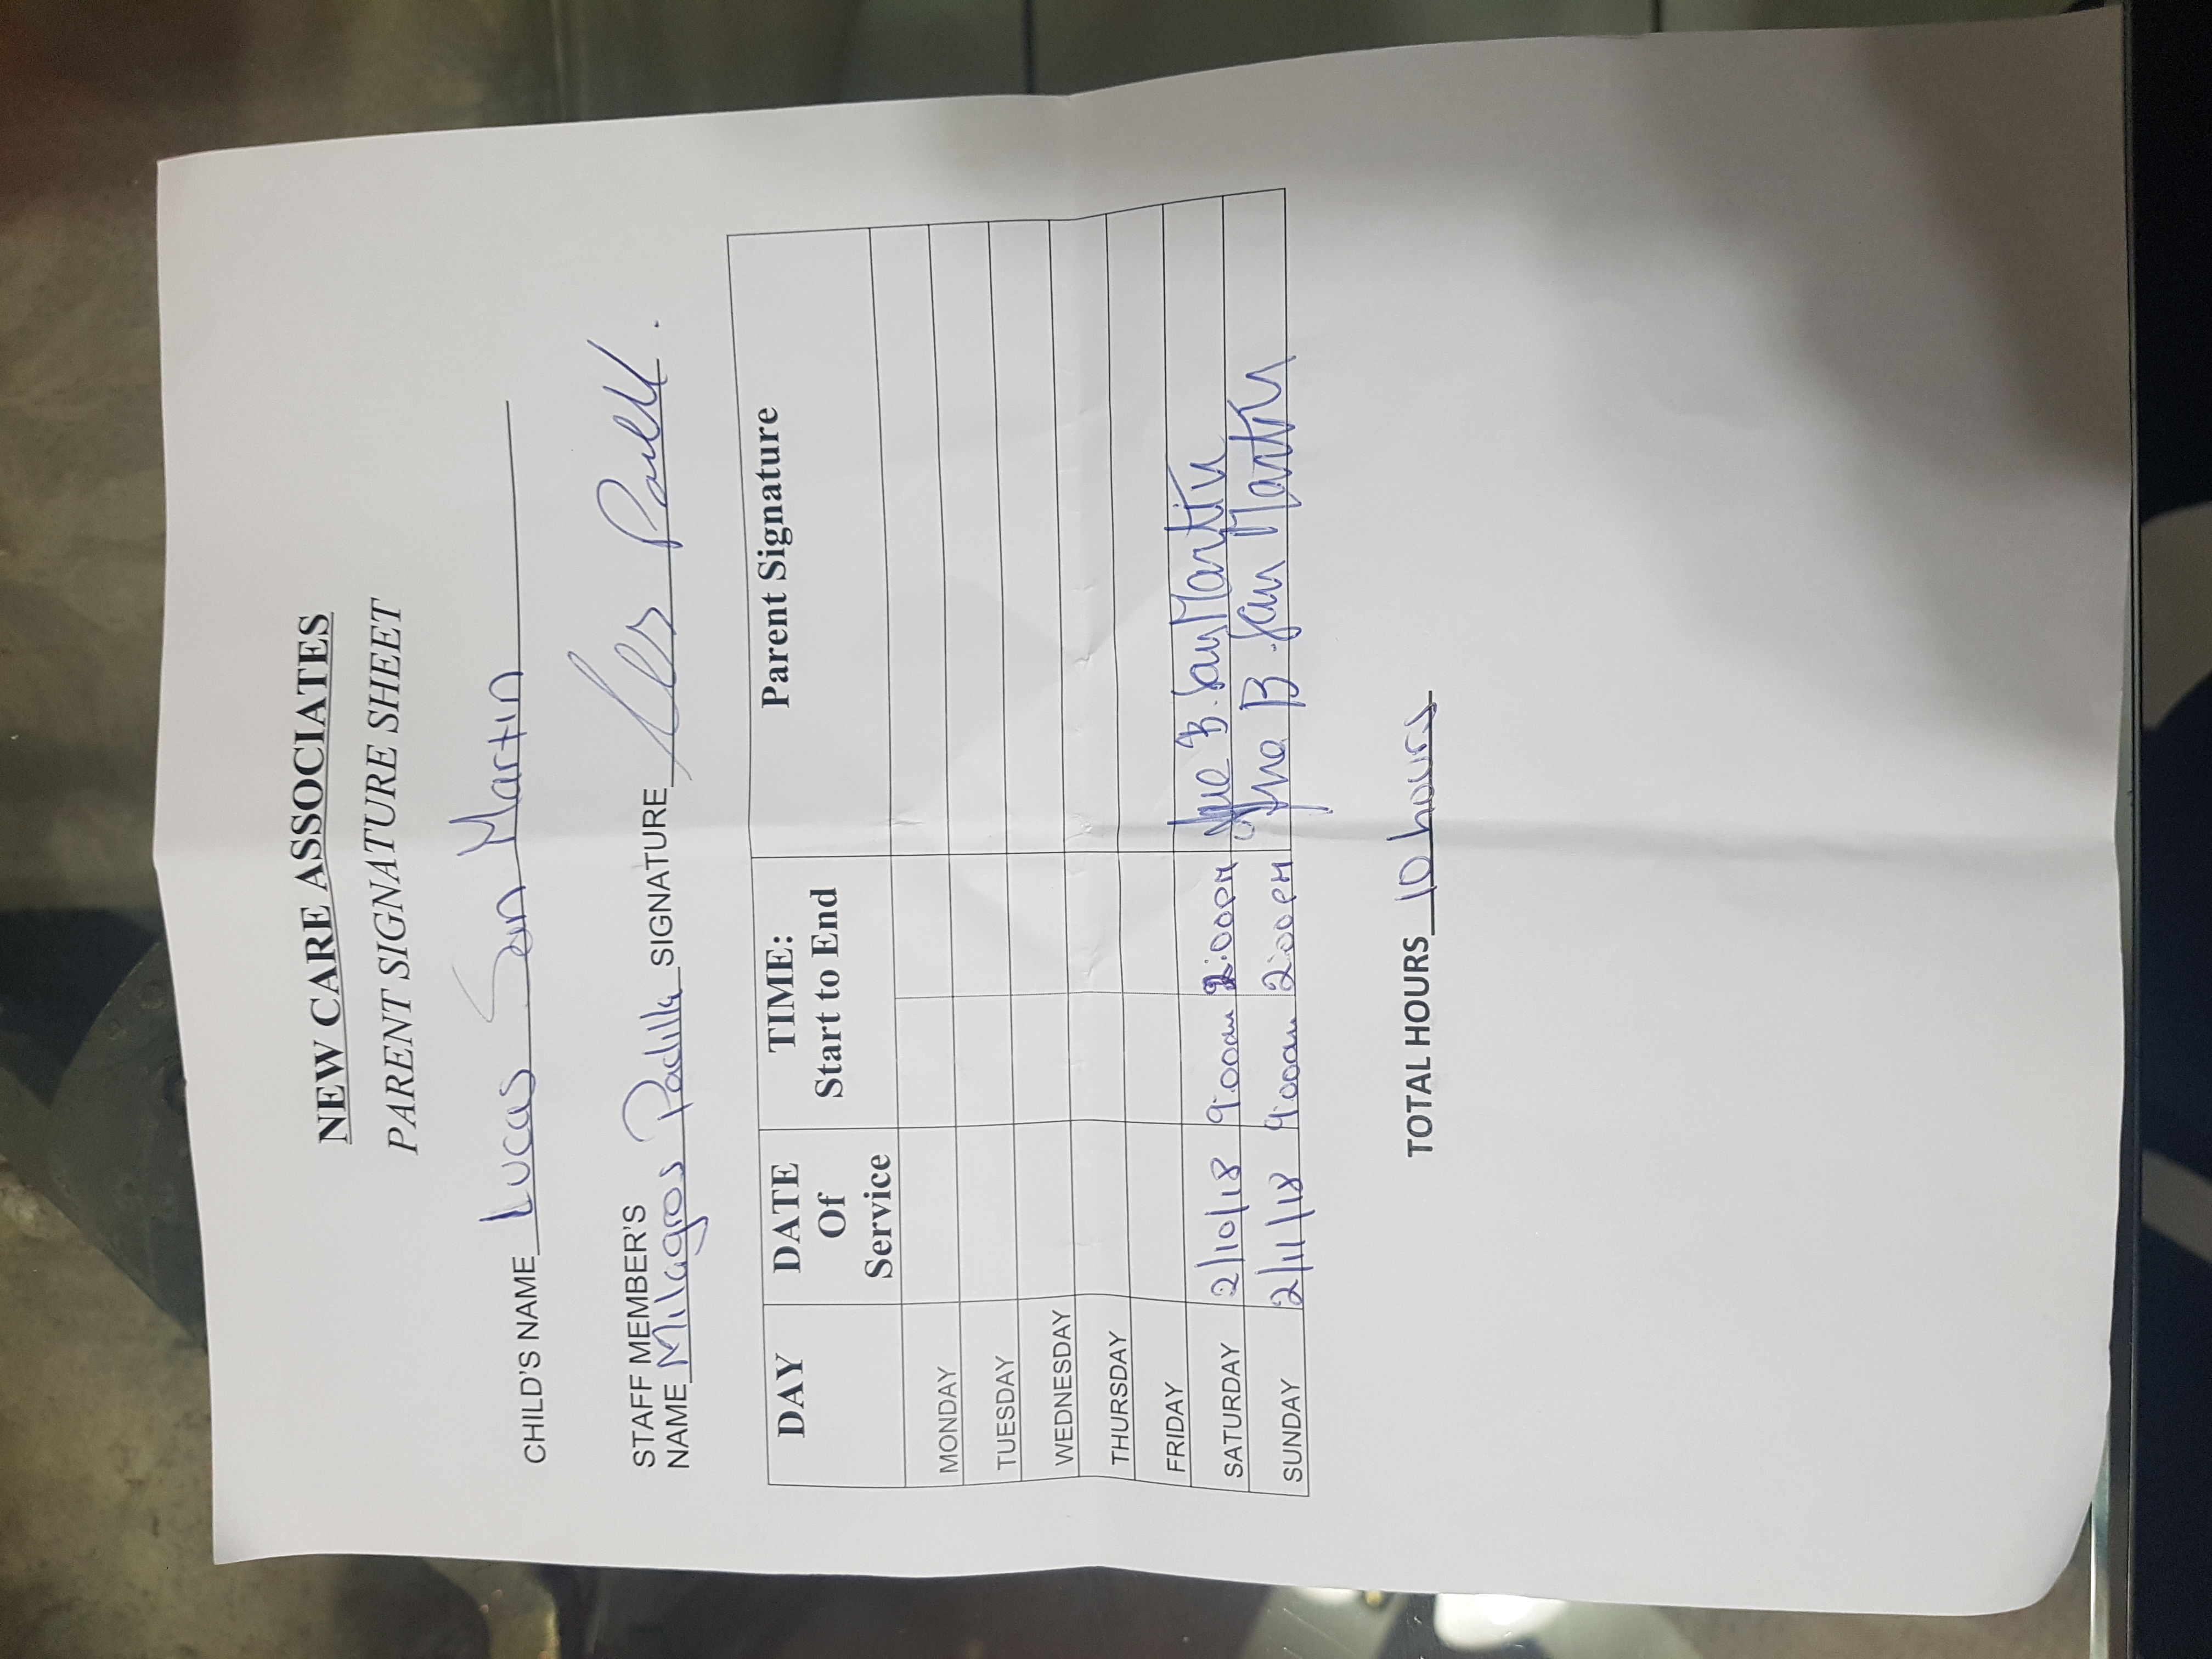 NEW CARE ASSOCIATES
PARENT SIGNATURE SHEET
CHILD'S NAME Lucas San Martin
STAFF MEMBER'S
NAME Milagros Padilla SIGNATURE
DAY DATE Of Service TIME: Start to End Parent Signature
MONDAY
TUESDAY
WEDNESDAY
THURSDAY
FRIDAY
SATURDAY 2/10/18 9:00am 2:00PM B. San Martin
SUNDAY 2/11/18 9:00am 2:00PM B San Martin
TOTAL HOURS 10 hours